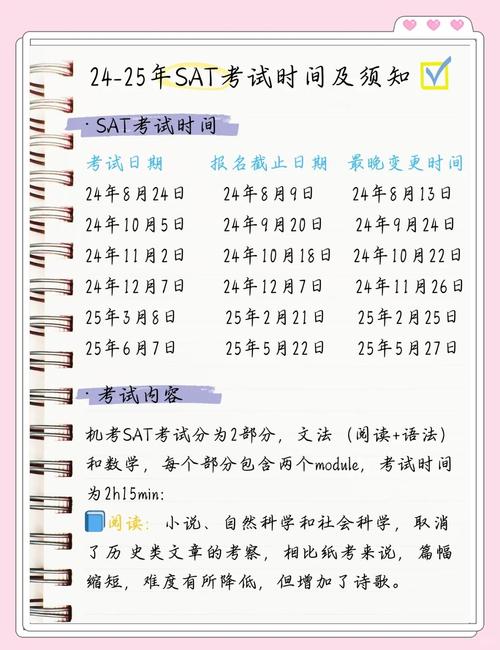 24-25年SAT考试时间及须知
·SAT考试时间
考试日期 报名截止日期 最晚变更时间
24年8月24日 24年8月9日 24年8月13日
24年10月5日 24年9月20日 24年9月24日
24年11月2日 24年10月18日 24年10月22日
24年12月7日 24年12月7日 24年11月26日
25年3月8日 25年2月21日 25年2月25日
25年6月7日 25年5月22日 25年5月27日
·考试内容
机考SAT考试分为2部分，文法（阅读+语法）
和数学，每个部分包含两个module，考试时间
为2h15min:
阅读：小说、自然科学和社会科学，取消
了历史类文章的考察，相比纸考来说，篇幅
缩短，难度有所降低，但增加了诗歌。